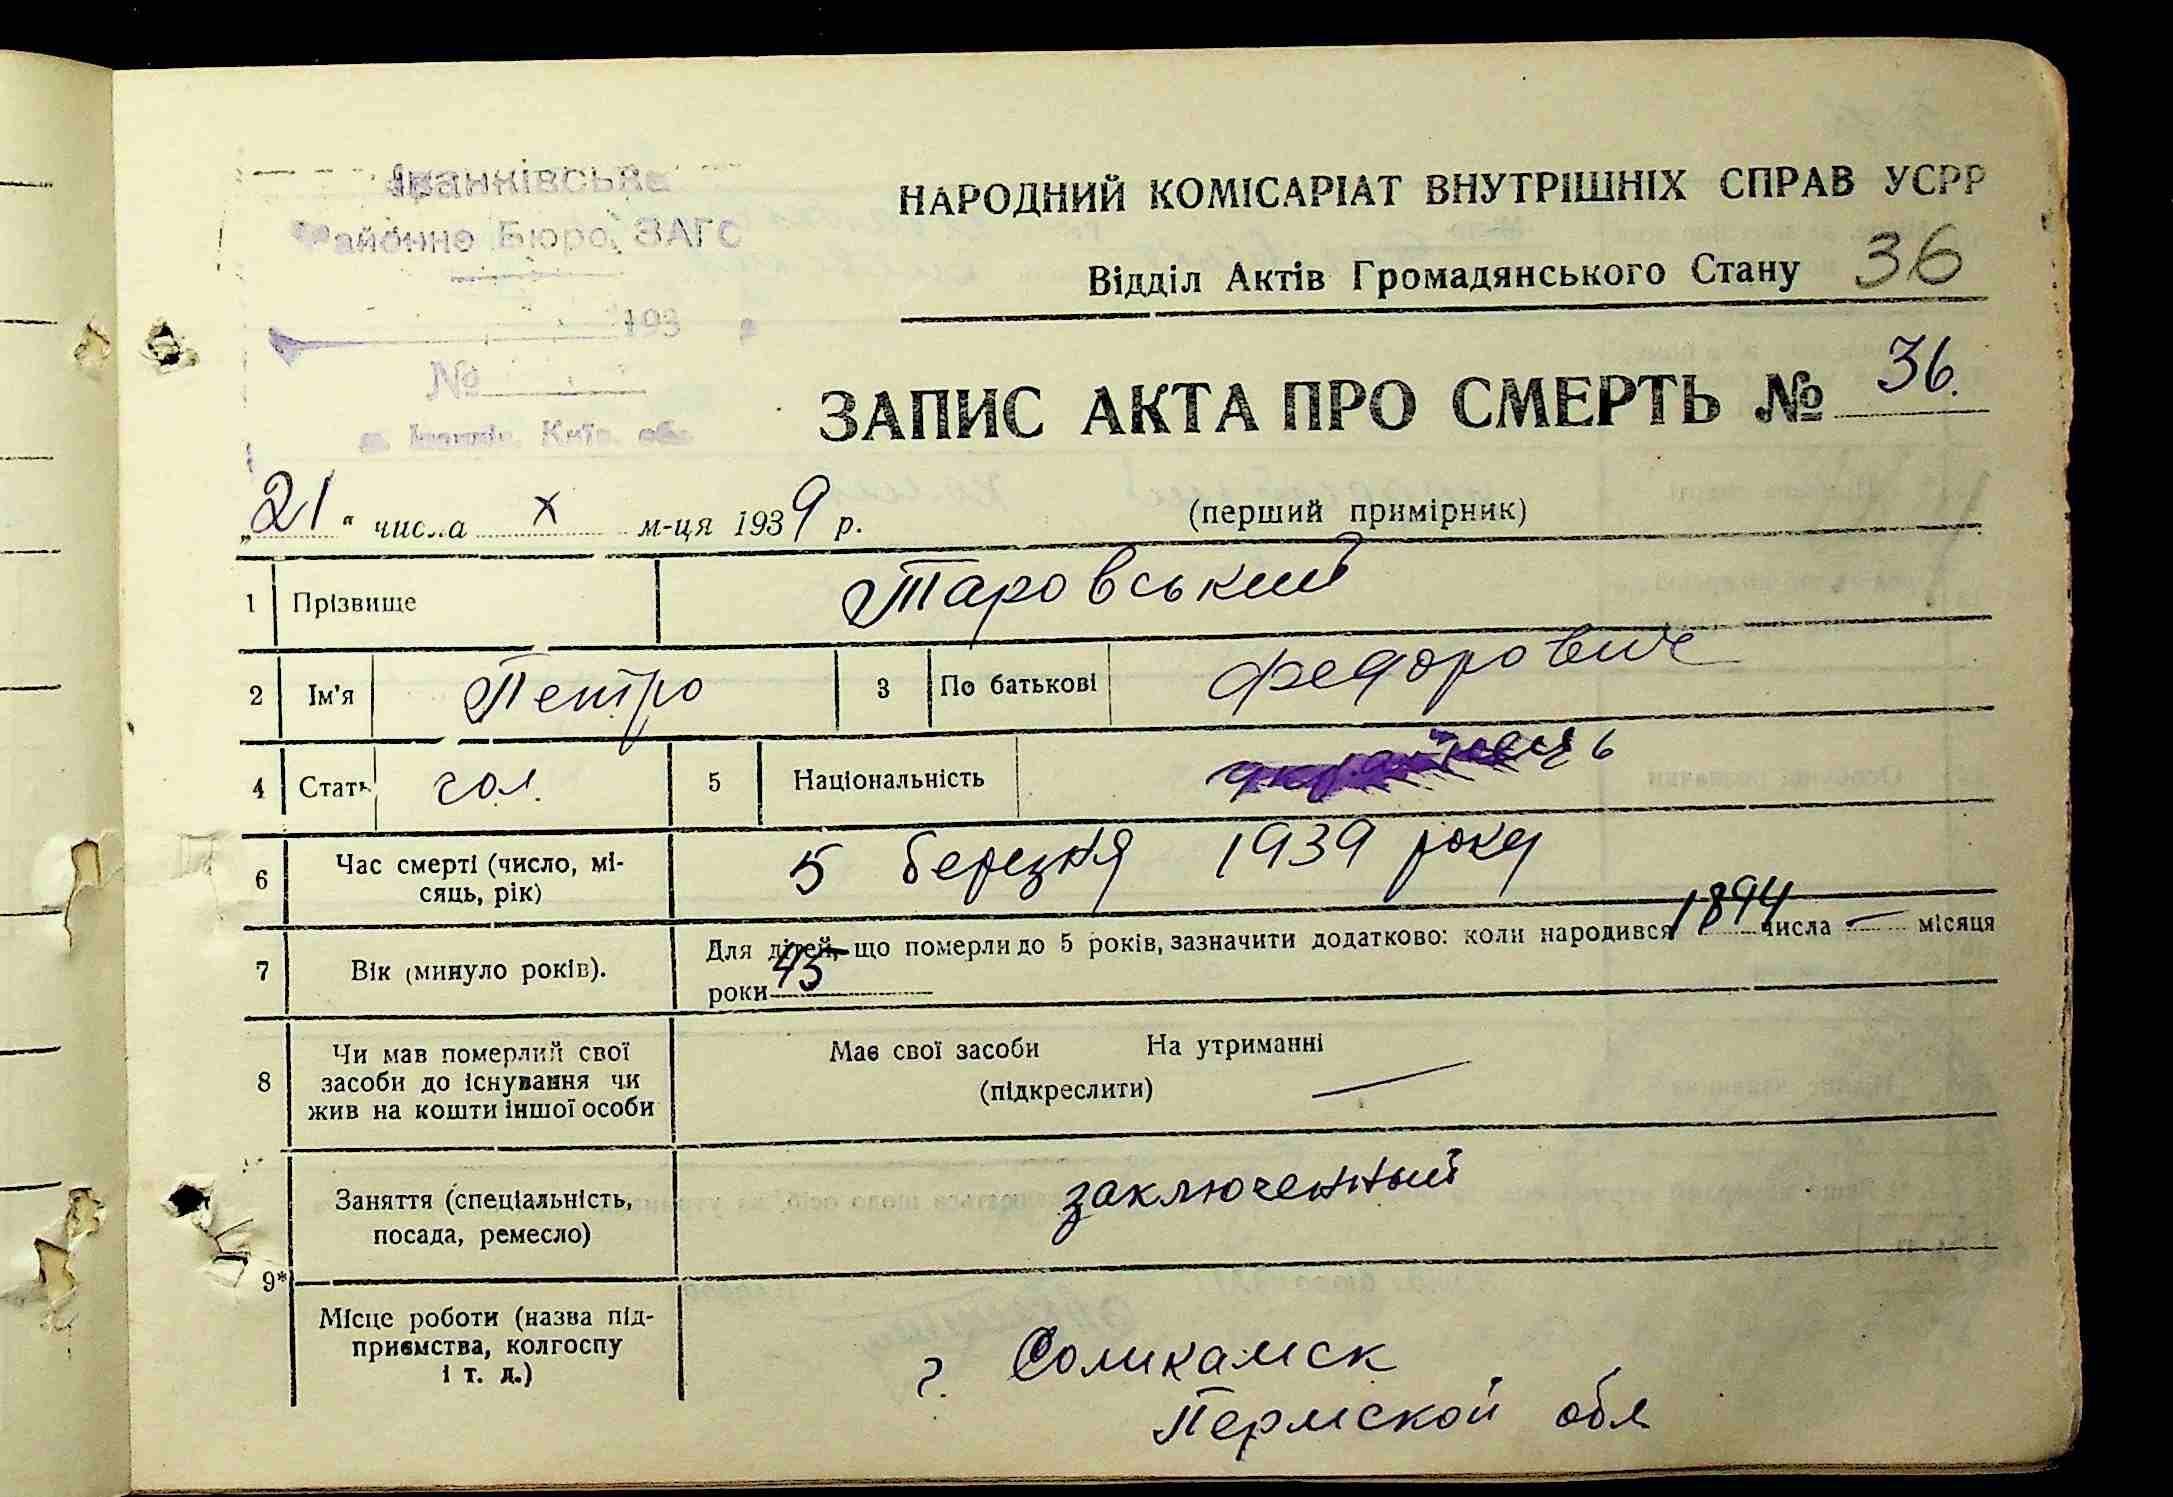 Іванківське
Районне Бюро ЗАГС
193 р
№
м. Іванків, Київ. обл.
НАРОДНИЙ КОМІСАРІАТ ВНУТРІШНІХ СПРАВ УСРР
Відділ Актів Громадянського Стану 36
ЗАПИС АКТА ПРО СМЕРТЬ № 36.
„21" числа X м-ця 1939 р.
(перший примірник)
1 Прізвище Таровський
2 Ім'я Петро 3 По батькові Федорович
4 Стать чол. 5 Національність українець
6 Час смерті (число, мі-
сяць, рік) 5 березня 1939 року
7 Вік (минуло років). Для дітей, що померли до 5 років, зазначити додатково: коли народився 1894 числа — місяця
роки 45
8 Чи мав померлий свої
засоби до існування чи
жив на кошти іншої особи
Має свої засоби На утриманні
(підкреслити) —
9* Заняття (спеціальність,
посада, ремесло) заключенный
Місце роботи (назва під-
приємства, колгоспу
і т. д.)
г. Соликамск
Пермской обл